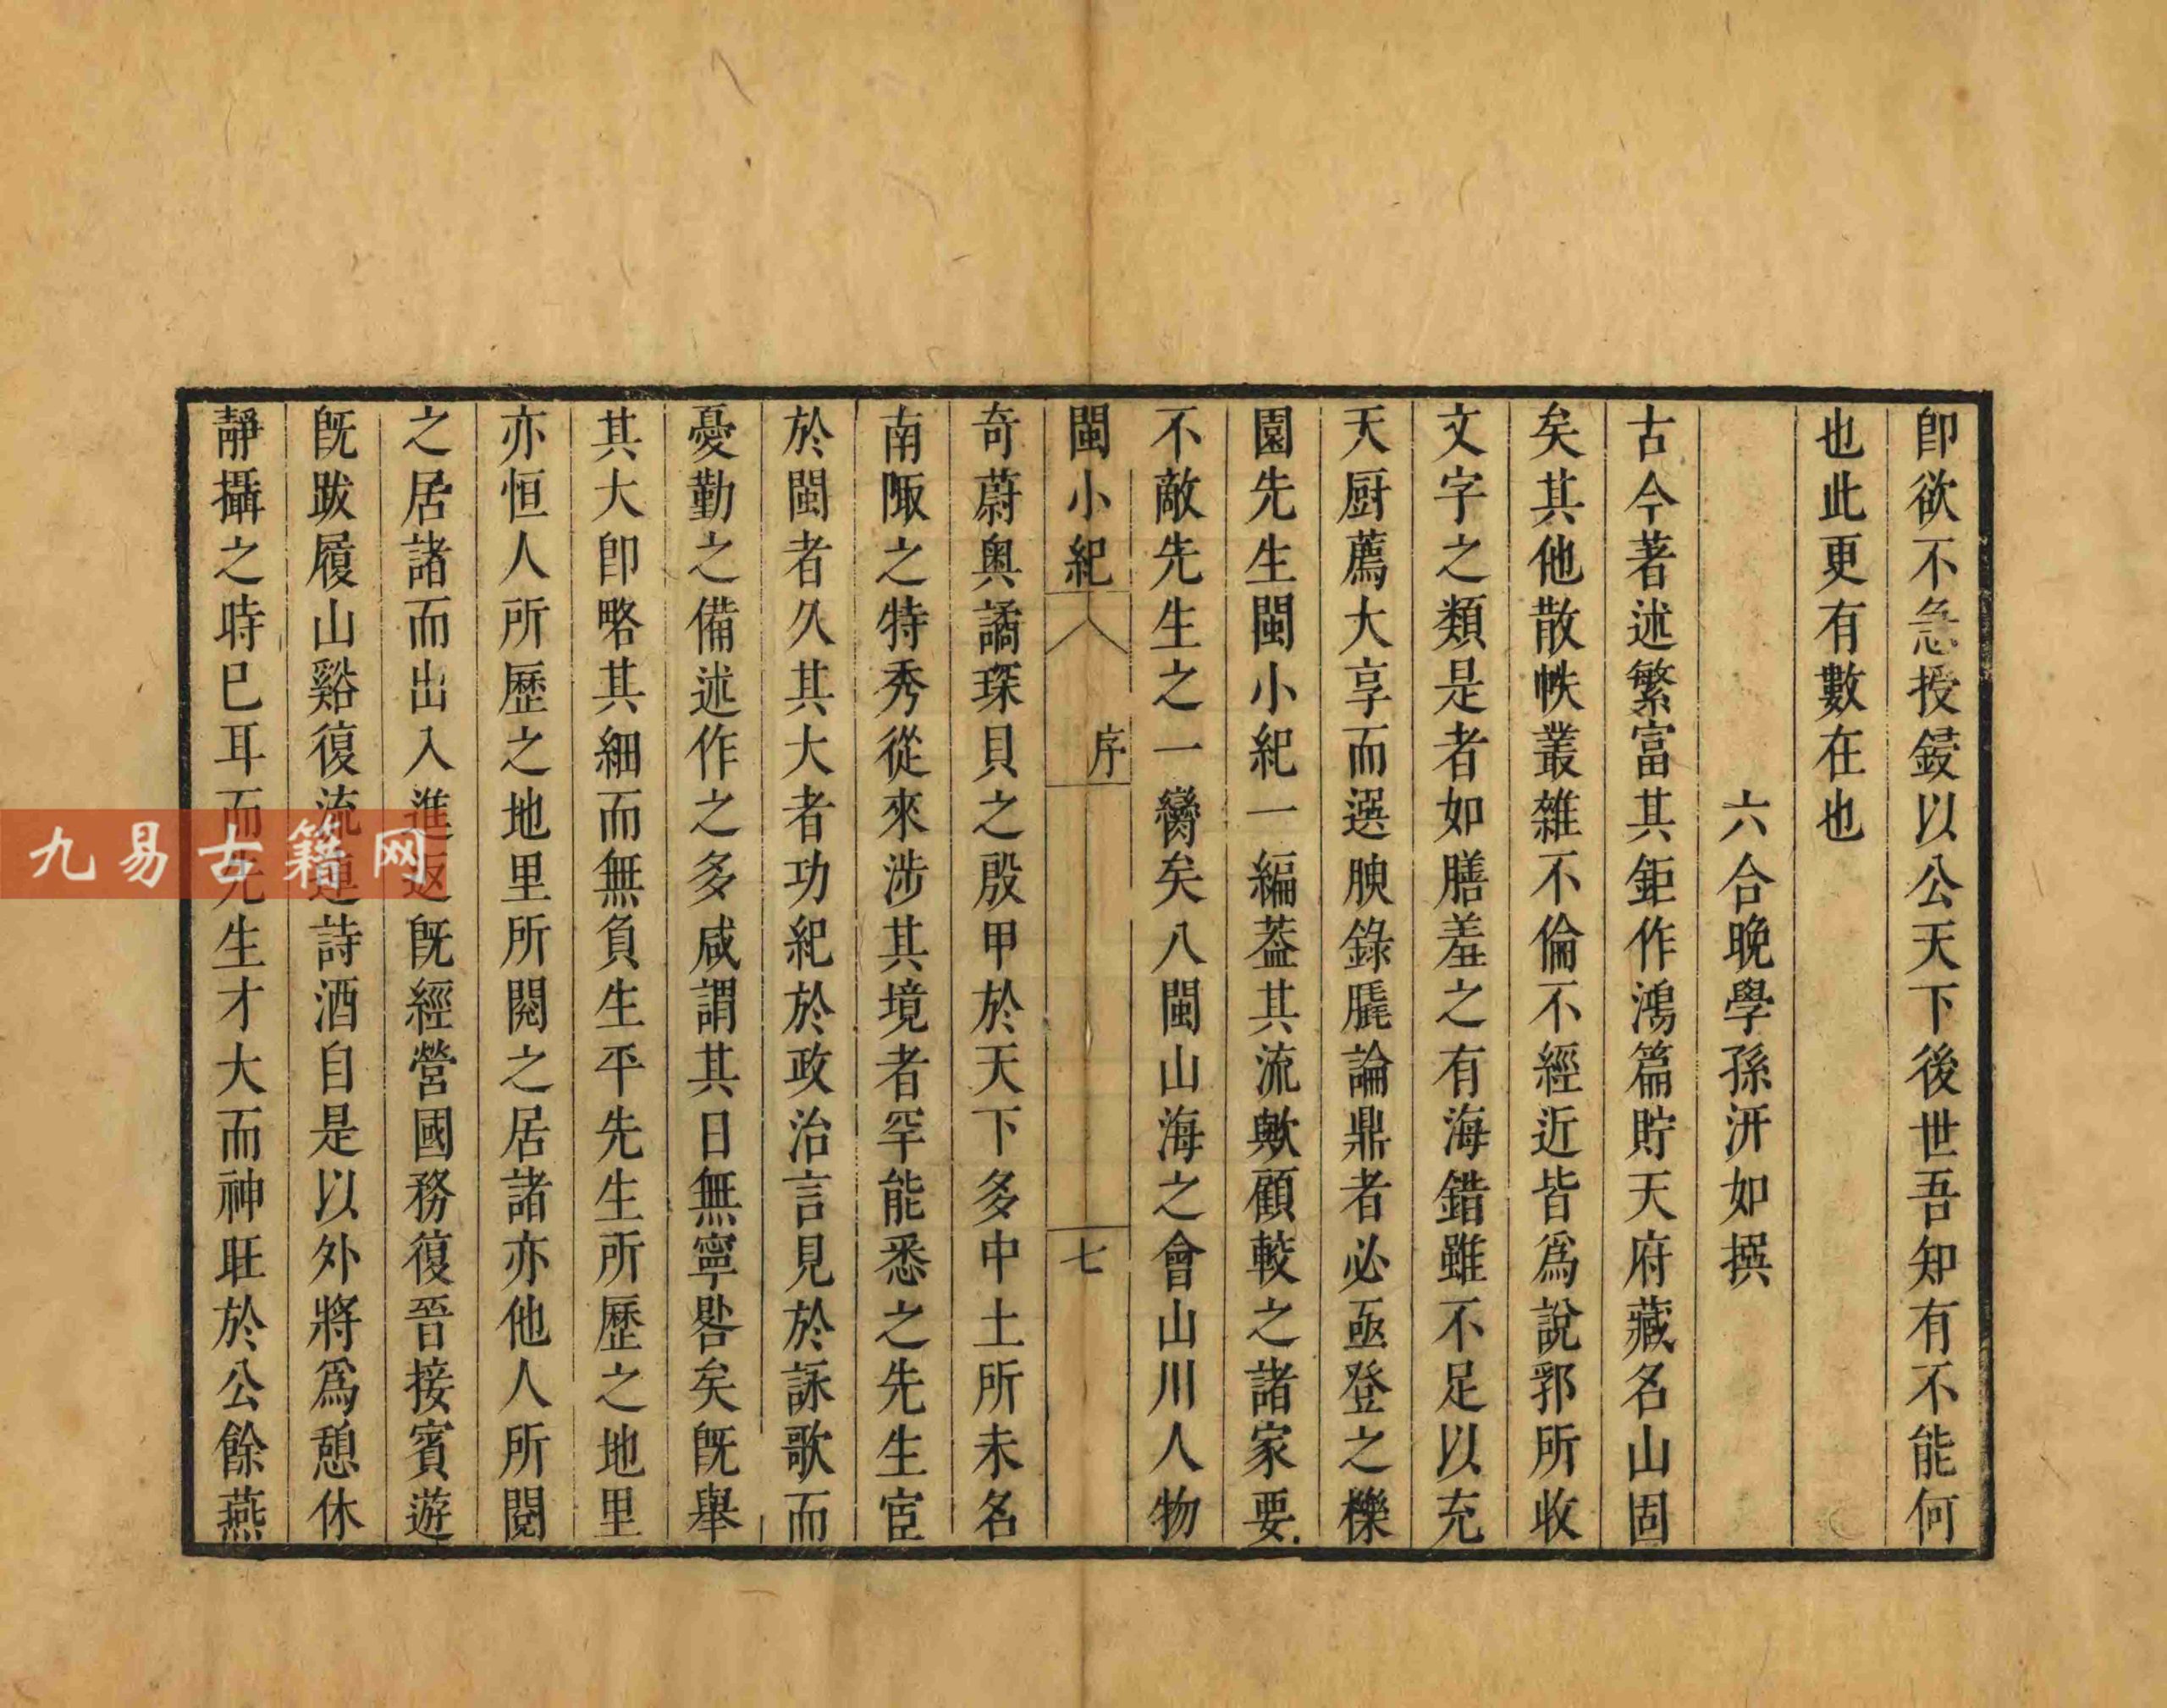 卽欲不急授鋟以公天下後世吾知有不能何
也此更有數在也
六合晚學孫汧如撰
古今著述繁富其鉅作鴻篇貯天府藏名山固
矣其他散帙叢雜不倫不經近皆爲說郛所收
文字之類是者如膳羞之有海錯雖不足以充
天厨薦大享而選腴錄毳論鼎者必亟登之櫟
園先生閩小紀一編葢其流歟顧較之諸家要
不敵先生之一臠矣八閩山海之會山川人物
閩小紀 序 七
奇蔚奥譎琛貝之殷甲於天下多中土所未名
南陬之特秀從來涉其境者罕能悉之先生宦
於閩者久其大者功紀於政治言見於詠歌而
憂勤之備述作之多咸謂其日無寧晷矣旣舉
其大卽略其細而無負生平先生所歷之地里
亦恒人所歷之地里所閱之居諸亦他人所閱
之居諸而出入進返旣經營國務復晉接賓遊
旣跋履山谿復流連詩酒自是以外將爲憩休
靜攝之時巳耳而先生才大而神旺於公餘燕
九易古籍网